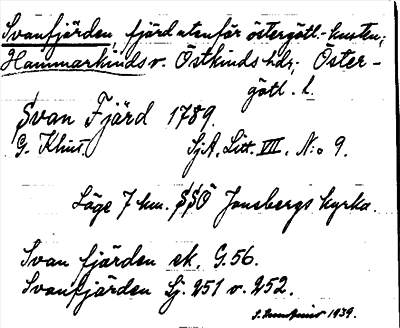 Svanfjärden fjärd utanför östergötl. kusten,
Hammarkinds o. Östkinds hdr, Öster-
götl. l.
Svan Fjärd 1789.
G. Klint SjA. Litt. VIII. N:o 9.
Läge 7 km. SSÖ Jonsbergs kyrka.
Svan fjärden ek. G.56.
Svanfjärden Sj. 251 o. 252.
1939.